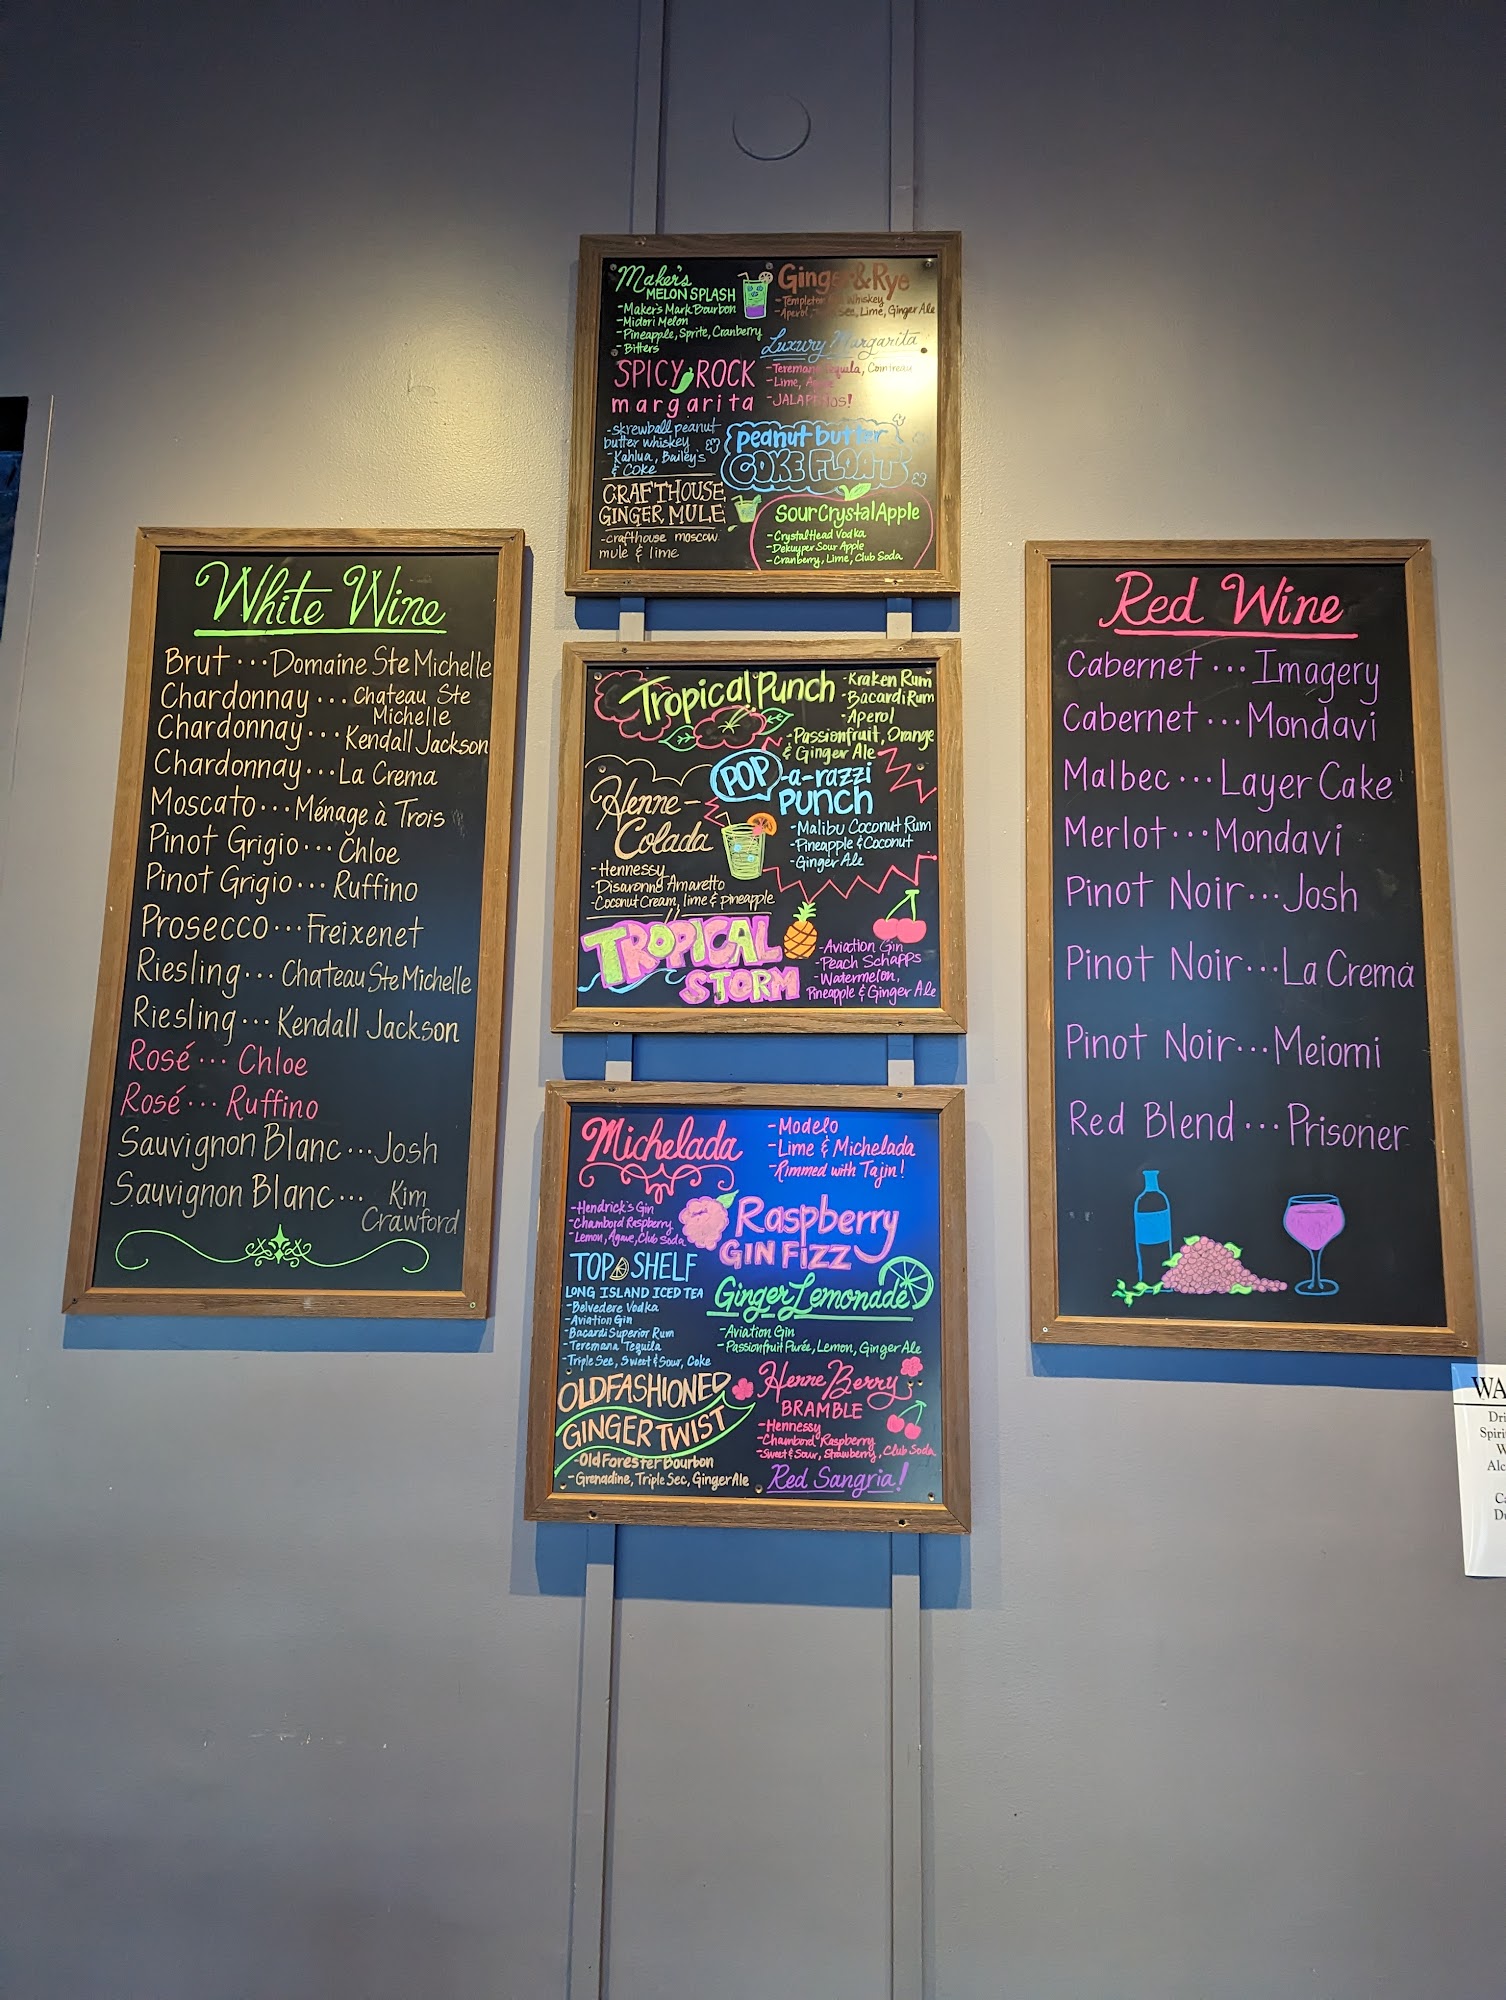 White Wine
Brut ... Domaine Ste Michelle
Chardonnay ... Chateau Ste
Michelle
Chardonnay ... Kendall Jackson
Chardonnay ... La Crema
Moscato ... Ménage à Trois
Pinot Grigio ... Chloe
Pinot Grigio ... Ruffino
Prosecco ... Freixenet
Riesling ... Chateau Ste Michelle
Riesling ... Kendall Jackson
Rosé ... Chloe
Rosé ... Ruffino
Sauvignon Blanc ... Josh
Sauvignon Blanc ... Kim
Crawford
Maker's
MELON SPLASH
-Maker's Mark Bourbon
-Midori Melon
-Pineapple, Sprite, Cranberry
-Bitters
Ginger & Rye
-Templeton Whiskey
Aperol, Lime, Ginger Ale
SPICY ROCK
margarita
Luxury Margarita
-Teremana Tequila, Cointreau
-Lime, Agave
-JALAPEÑOS!
-skrewball peanut
butter whiskey
-Kahlua, Bailey's
& Coke
peanut butter
COKE FLOAT
CRAFTHOUSE
GINGER MULE
-crafthouse moscow
mule & lime
Sour Crystal Apple
-Crystal Head Vodka
-Dekuyper Sour Apple
-Cranberry, Lime, Club Soda
Tropical Punch
-Kraken Rum
-Bacardi Rum
-Aperol
-Passionfruit, Orange
& Ginger Ale
POP -a-razzi
PUNCH
-Malibu Coconut Rum
-Pineapple & Coconut
-Ginger Ale
Henne-
Colada
-Hennessy
-Disaronno Amaretto
-Coconut Cream, lime & pineapple
TROPICAL
STORM
-Aviation Gin
-Peach Schapps
-Watermelon,
Pineapple & Ginger Ale
Michelada
-Modelo
-Lime & Michelada
-Rimmed with Tajin!
-Hendrick's Gin
-Chambord Raspberry
-Lemon, Agave, Club Soda
Raspberry
GIN FIZZ
TOP SHELF
LONG ISLAND ICED TEA
-Belvedere Vodka
-Aviation Gin
-Bacardi Superior Rum
-Teremana Tequila
-Triple Sec, Sweet & Sour, Coke
Ginger Lemonade
-Aviation Gin
-Passionfruit Purée, Lemon, Ginger Ale
OLDFASHIONED
GINGER TWIST
-Old Forester Bourbon
-Grenadine, Triple Sec, Ginger Ale
Henne Berry
BRAMBLE
-Hennessy
-Chambord Raspberry
-Sweet & Sour, Strawberry, Club Soda
Red Sangria!
Red Wine
Cabernet ... Imagery
Cabernet ... Mondavi
Malbec ... Layer Cake
Merlot ... Mondavi
Pinot Noir ... Josh
Pinot Noir ... La Crema
Pinot Noir ... Meiomi
Red Blend ... Prisoner
WA
Dri
Spiri
W
Alc
Ca